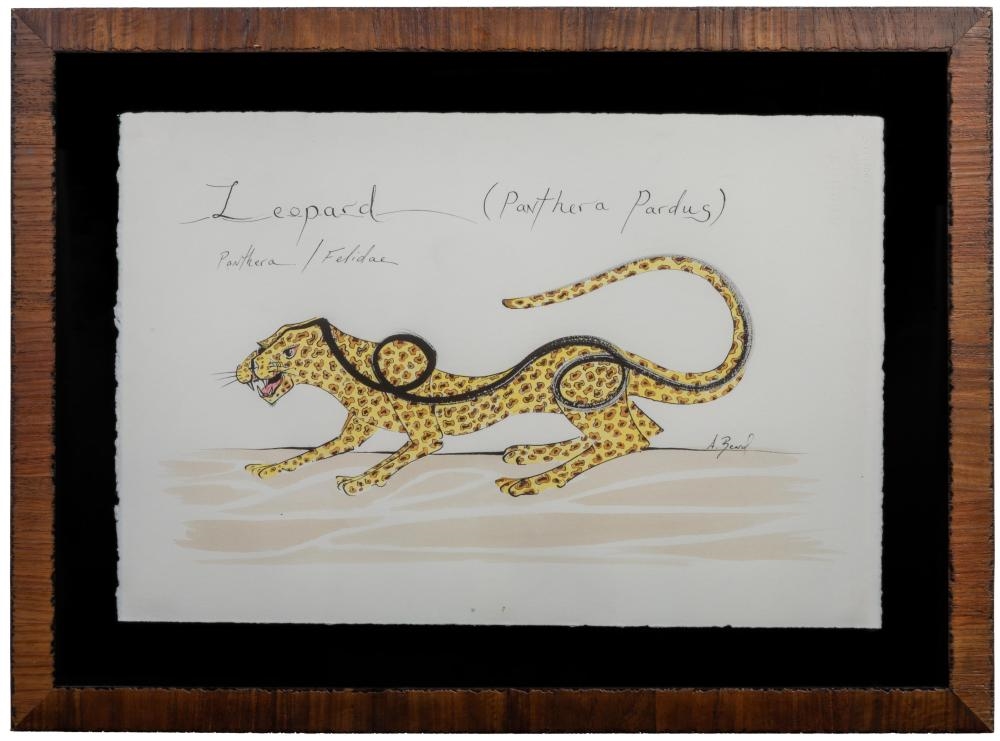 Leopard (Panthera Pardus)
Panthera / Felidae
A. Beard